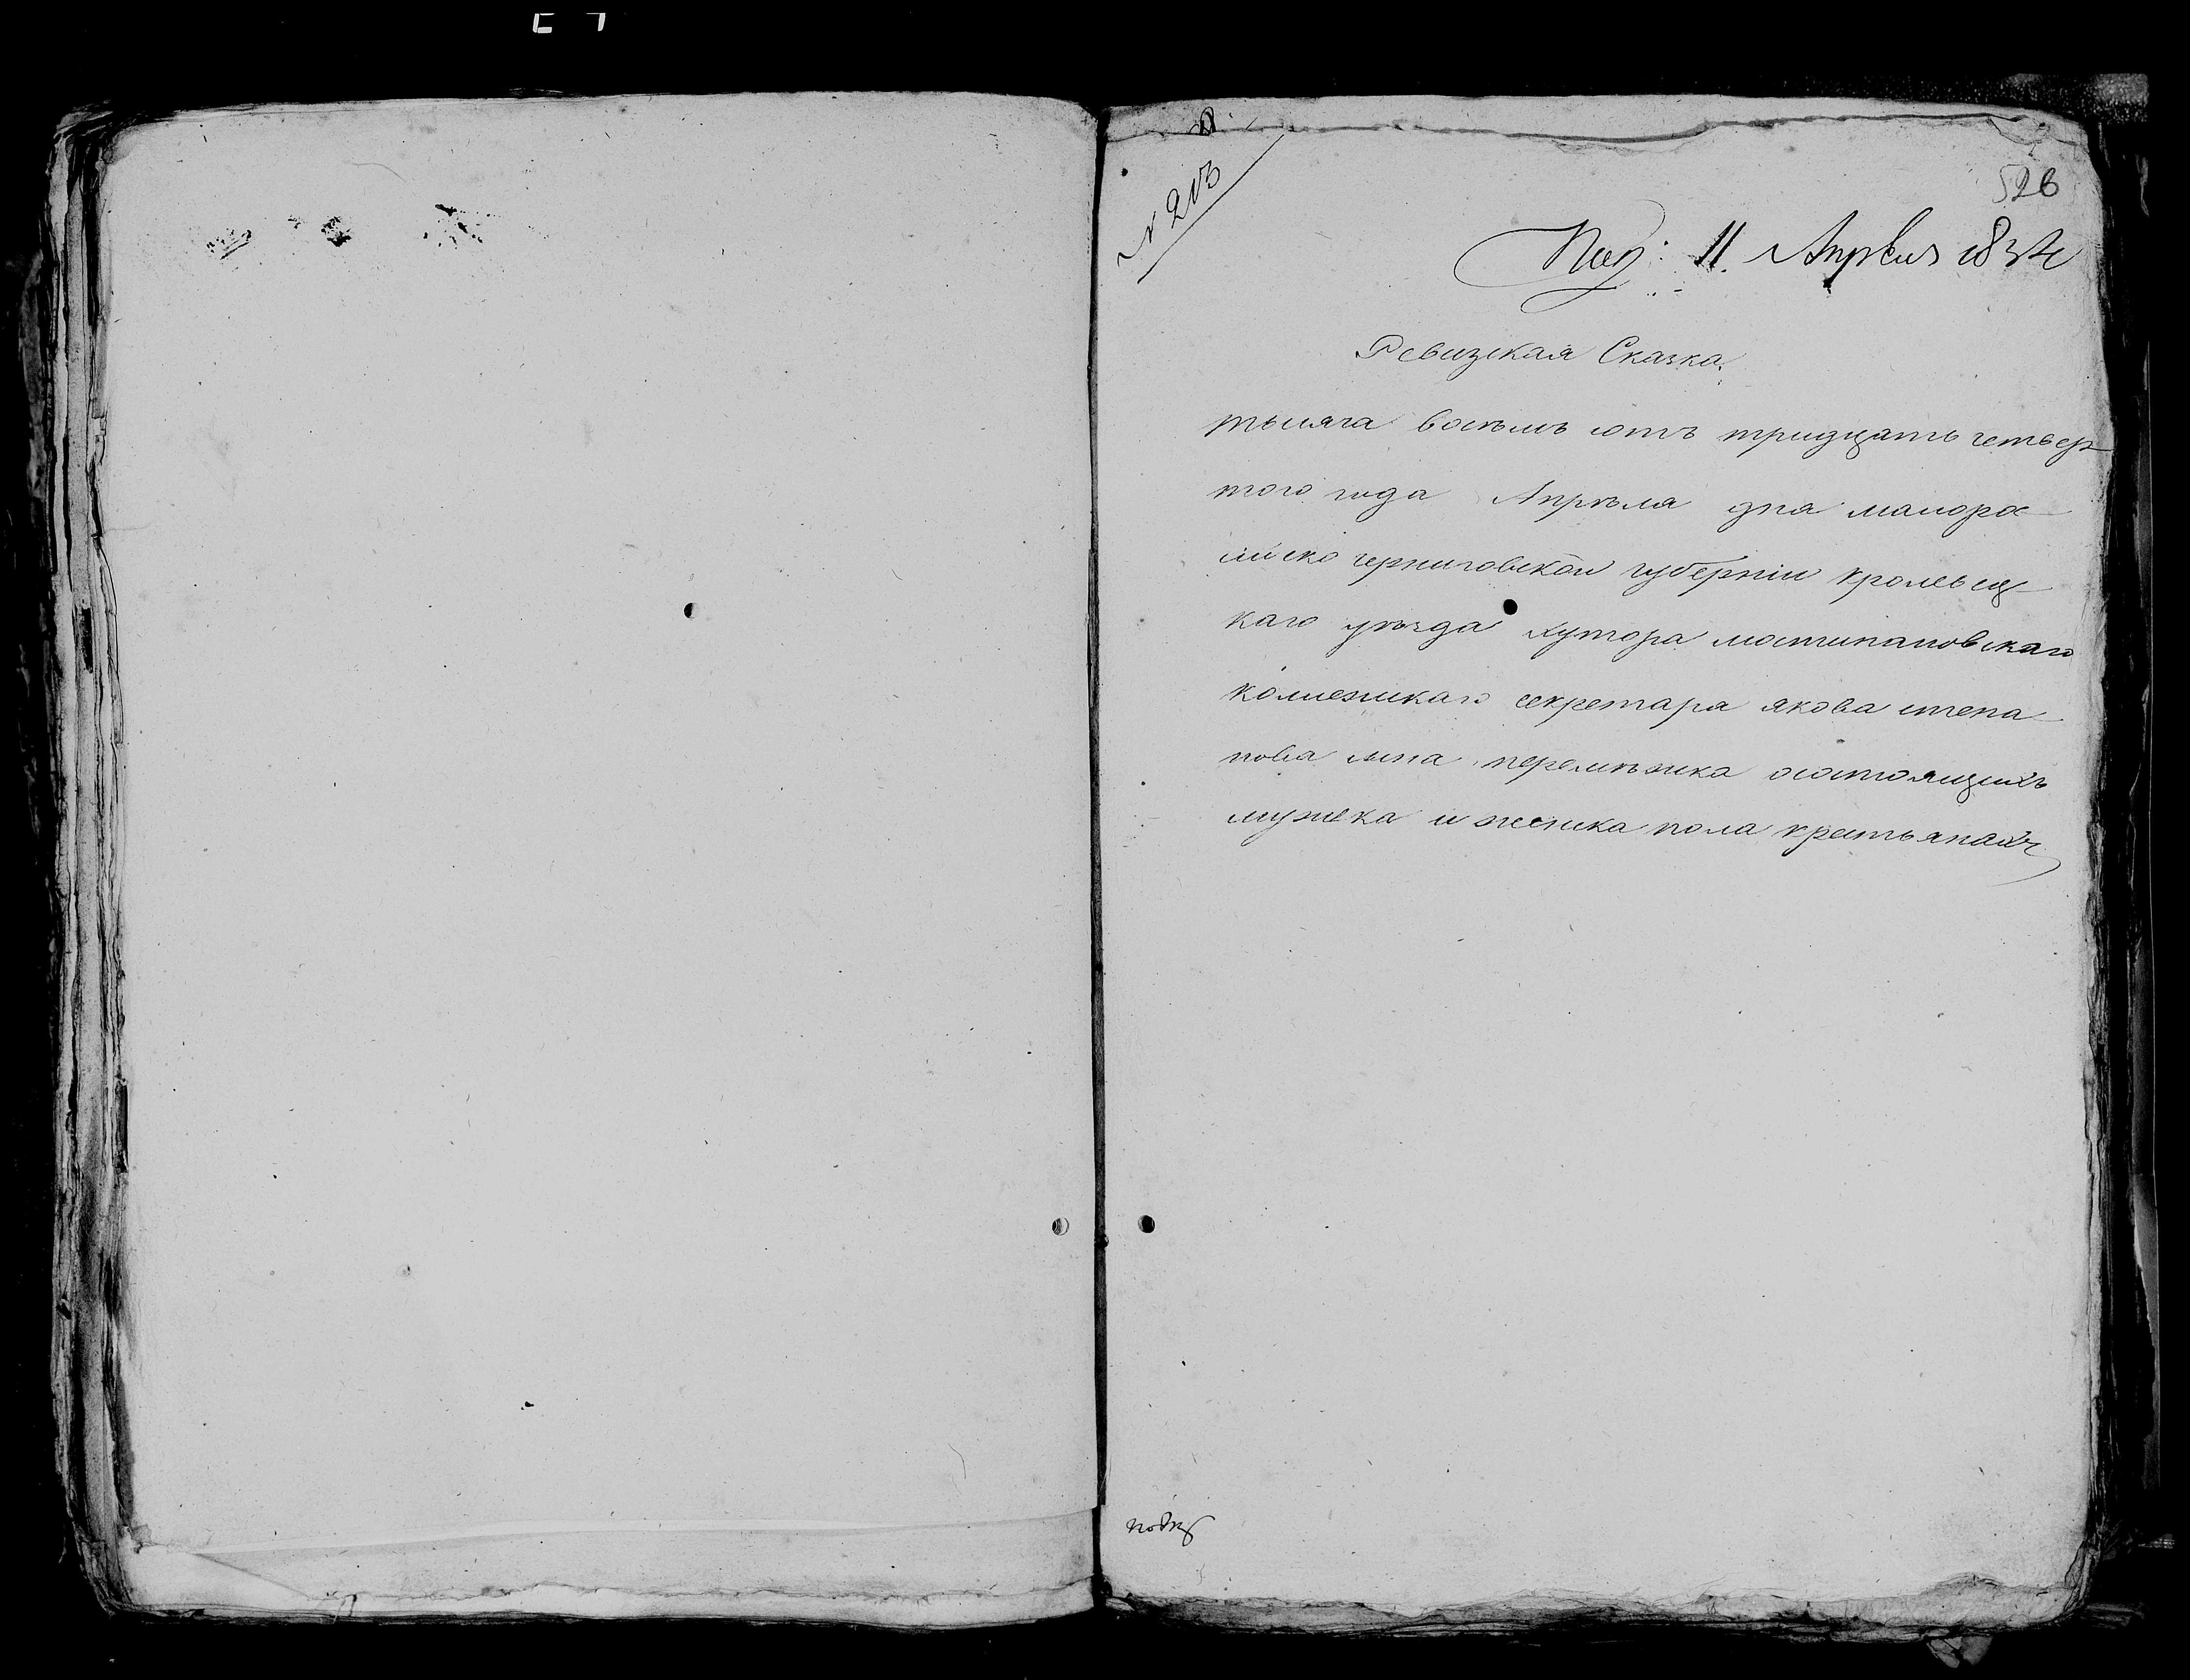 № 213
526
Под: 11 Апреля 1834
Ревизкая Сказка
тысяча восѣмъ сотъ тридцать четвер
того года Апрѣля дня малорос
сийско черниговской губернiи кролевец
каго уѣзда хутора мостипановскаго
колежскаго секретара якова степа
нова сина перемѣжка осостоящихъ
мужска и женска пола крестьянахъ